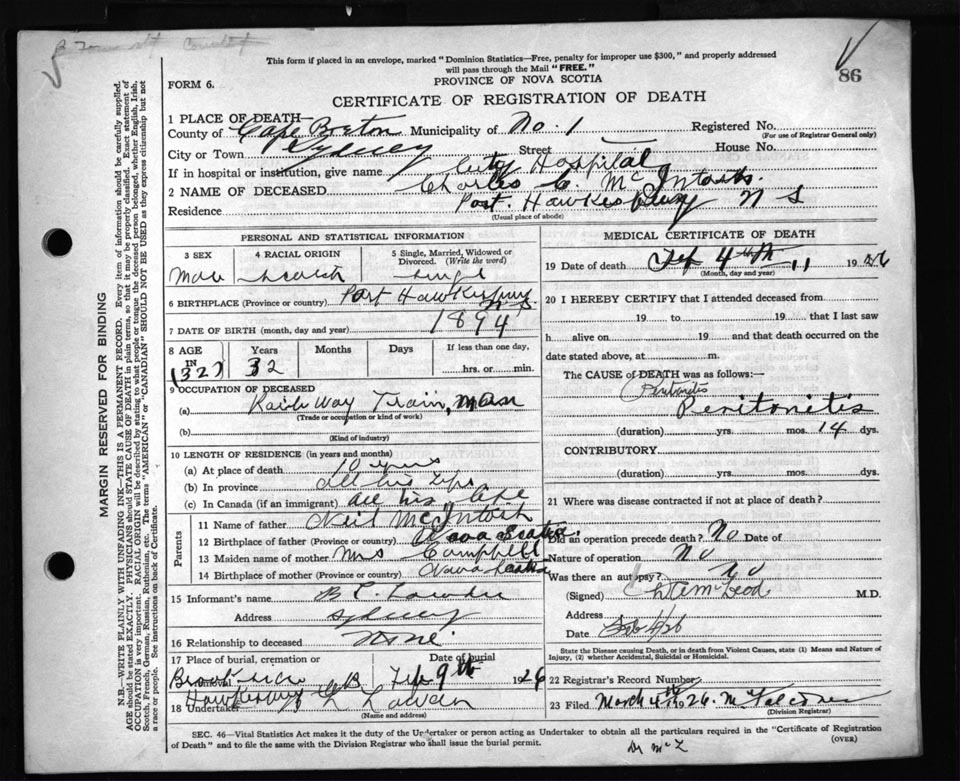 This form if placed in an envelope, marked "Dominion Statistics—Free, penalty for improper use $300," and properly addressed
will pass through the Mail "FREE."
86
FORM 6.
PROVINCE OF NOVA SCOTIA
CERTIFICATE OF REGISTRATION OF DEATH
1 PLACE OF DEATH—
County of Cape Breton Municipality of No. 1 Registered No.
(For use of Registrar General only)
City or Town Sydney Street House No.
If in hospital or institution, give name City Hospital
2 NAME OF DECEASED Charles C. McIntosh.
Residence Port. Hawkesbury N S
(Usual place of abode)
PERSONAL AND STATISTICAL INFORMATION
3 SEX 4 RACIAL ORIGIN 5 Single, Married, Widowed or
Divorced. (Write the word)
Male Scotch Single
6 BIRTHPLACE (Province or country) Port Hawkesbury
N.S.
7 DATE OF BIRTH (month, day and year) 1894
8 AGE Years Months Days If less than one day,
IN
(32) 32 hrs. or min.
9 OCCUPATION OF DECEASED
(a) Railway Train, man
(Trade or occupation or kind of work)
(b)
(Kind of industry)
10 LENGTH OF RESIDENCE (in years and months)
(a) At place of death 10 yrs
(b) In province All his life
(c) In Canada (if an immigrant) all his life
Parents
11 Name of father Neil McIntosh
12 Birthplace of father (Province or country) Nova Scotia
13 Maiden name of mother Mrs Campbell
14 Birthplace of mother (Province or country) Nova Scotia
15 Informant's name B
Address Sydney
16 Relationship to deceased None
17 Place of burial, cremation or Date of burial
Feb 9th 1926
Hawkesbury C B
18 Undertaker
(Name and address)
MEDICAL CERTIFICATE OF DEATH
19 Date of death Feb 4th 11 1926
(Month, day and year)
20 I HEREBY CERTIFY that I attended deceased from
19 to 19 that I last saw
h alive on 19 and that death occurred on the
date stated above, at m.
The CAUSE of DEATH was as follows:—
Peritonitis
Peritonitis
(duration) yrs. mos. 14 dys.
CONTRIBUTORY
(duration) yrs. mos. dys.
21 Where was disease contracted if not at place of death?
Did an operation precede death? No Date of
Nature of operation No
Was there an autopsy? No
(Signed) McLeod M.D.
Address
Date Feb 4/26
State the Disease causing Death, or in death from Violent Causes, state (1) Means and Nature of
Injury, (2) whether Accidental, Suicidal or Homicidal.
22 Registrar's Record Number
23 Filed March 4th 1926.
(Division Registrar)
SEC. 46—Vital Statistics Act makes it the duty of the Undertaker or person acting as Undertaker to obtain all the particulars required in the "Certificate of Registration
of Death" and to file the same with the Division Registrar who shall issue the burial permit.
(OVER)
MARGIN RESERVED FOR BINDING
N.B.—WRITE PLAINLY WITH UNFADING INK—THIS IS A PERMANENT RECORD. Every item of information should be carefully supplied.
AGE should be stated EXACTLY. PHYSICIANS should STATE CAUSE OF DEATH in plain terms, so that it may be properly classified. Exact statement of
OCCUPATION is very important. RACIAL ORIGIN will be described by stating to what people or tongue the deceased person belonged, whether English, Irish,
Scotch, French, German, Russian, Ruthenian, etc. The terms "AMERICAN" or "CANADIAN" SHOULD NOT BE USED as they express citizenship but not
a race or people. See instructions on back of Certificate.